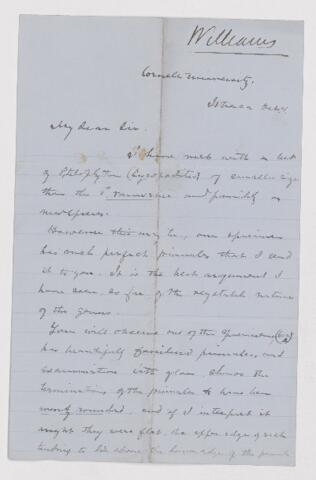 Williams
Cornell University,
Ithaca
My Dear Sir.
I have met with a lot
of Ptilophyton (Lycopodites) of smaller size
than the P. and possibly a
new species.
However this may be, one specimen
has such perfect pinnules that I send
it to you. It is the best argument I
have seen, so far, of the vegetable nature
of the genus.
You will observe one of the specimens,
has beautifully fossilized pinnules, and
examination with glass shows the
terminations of the pinnules to have been
rounded, and if I interpret it
right they were flat, the upper edge of each
tending to lie above the lower edge of the